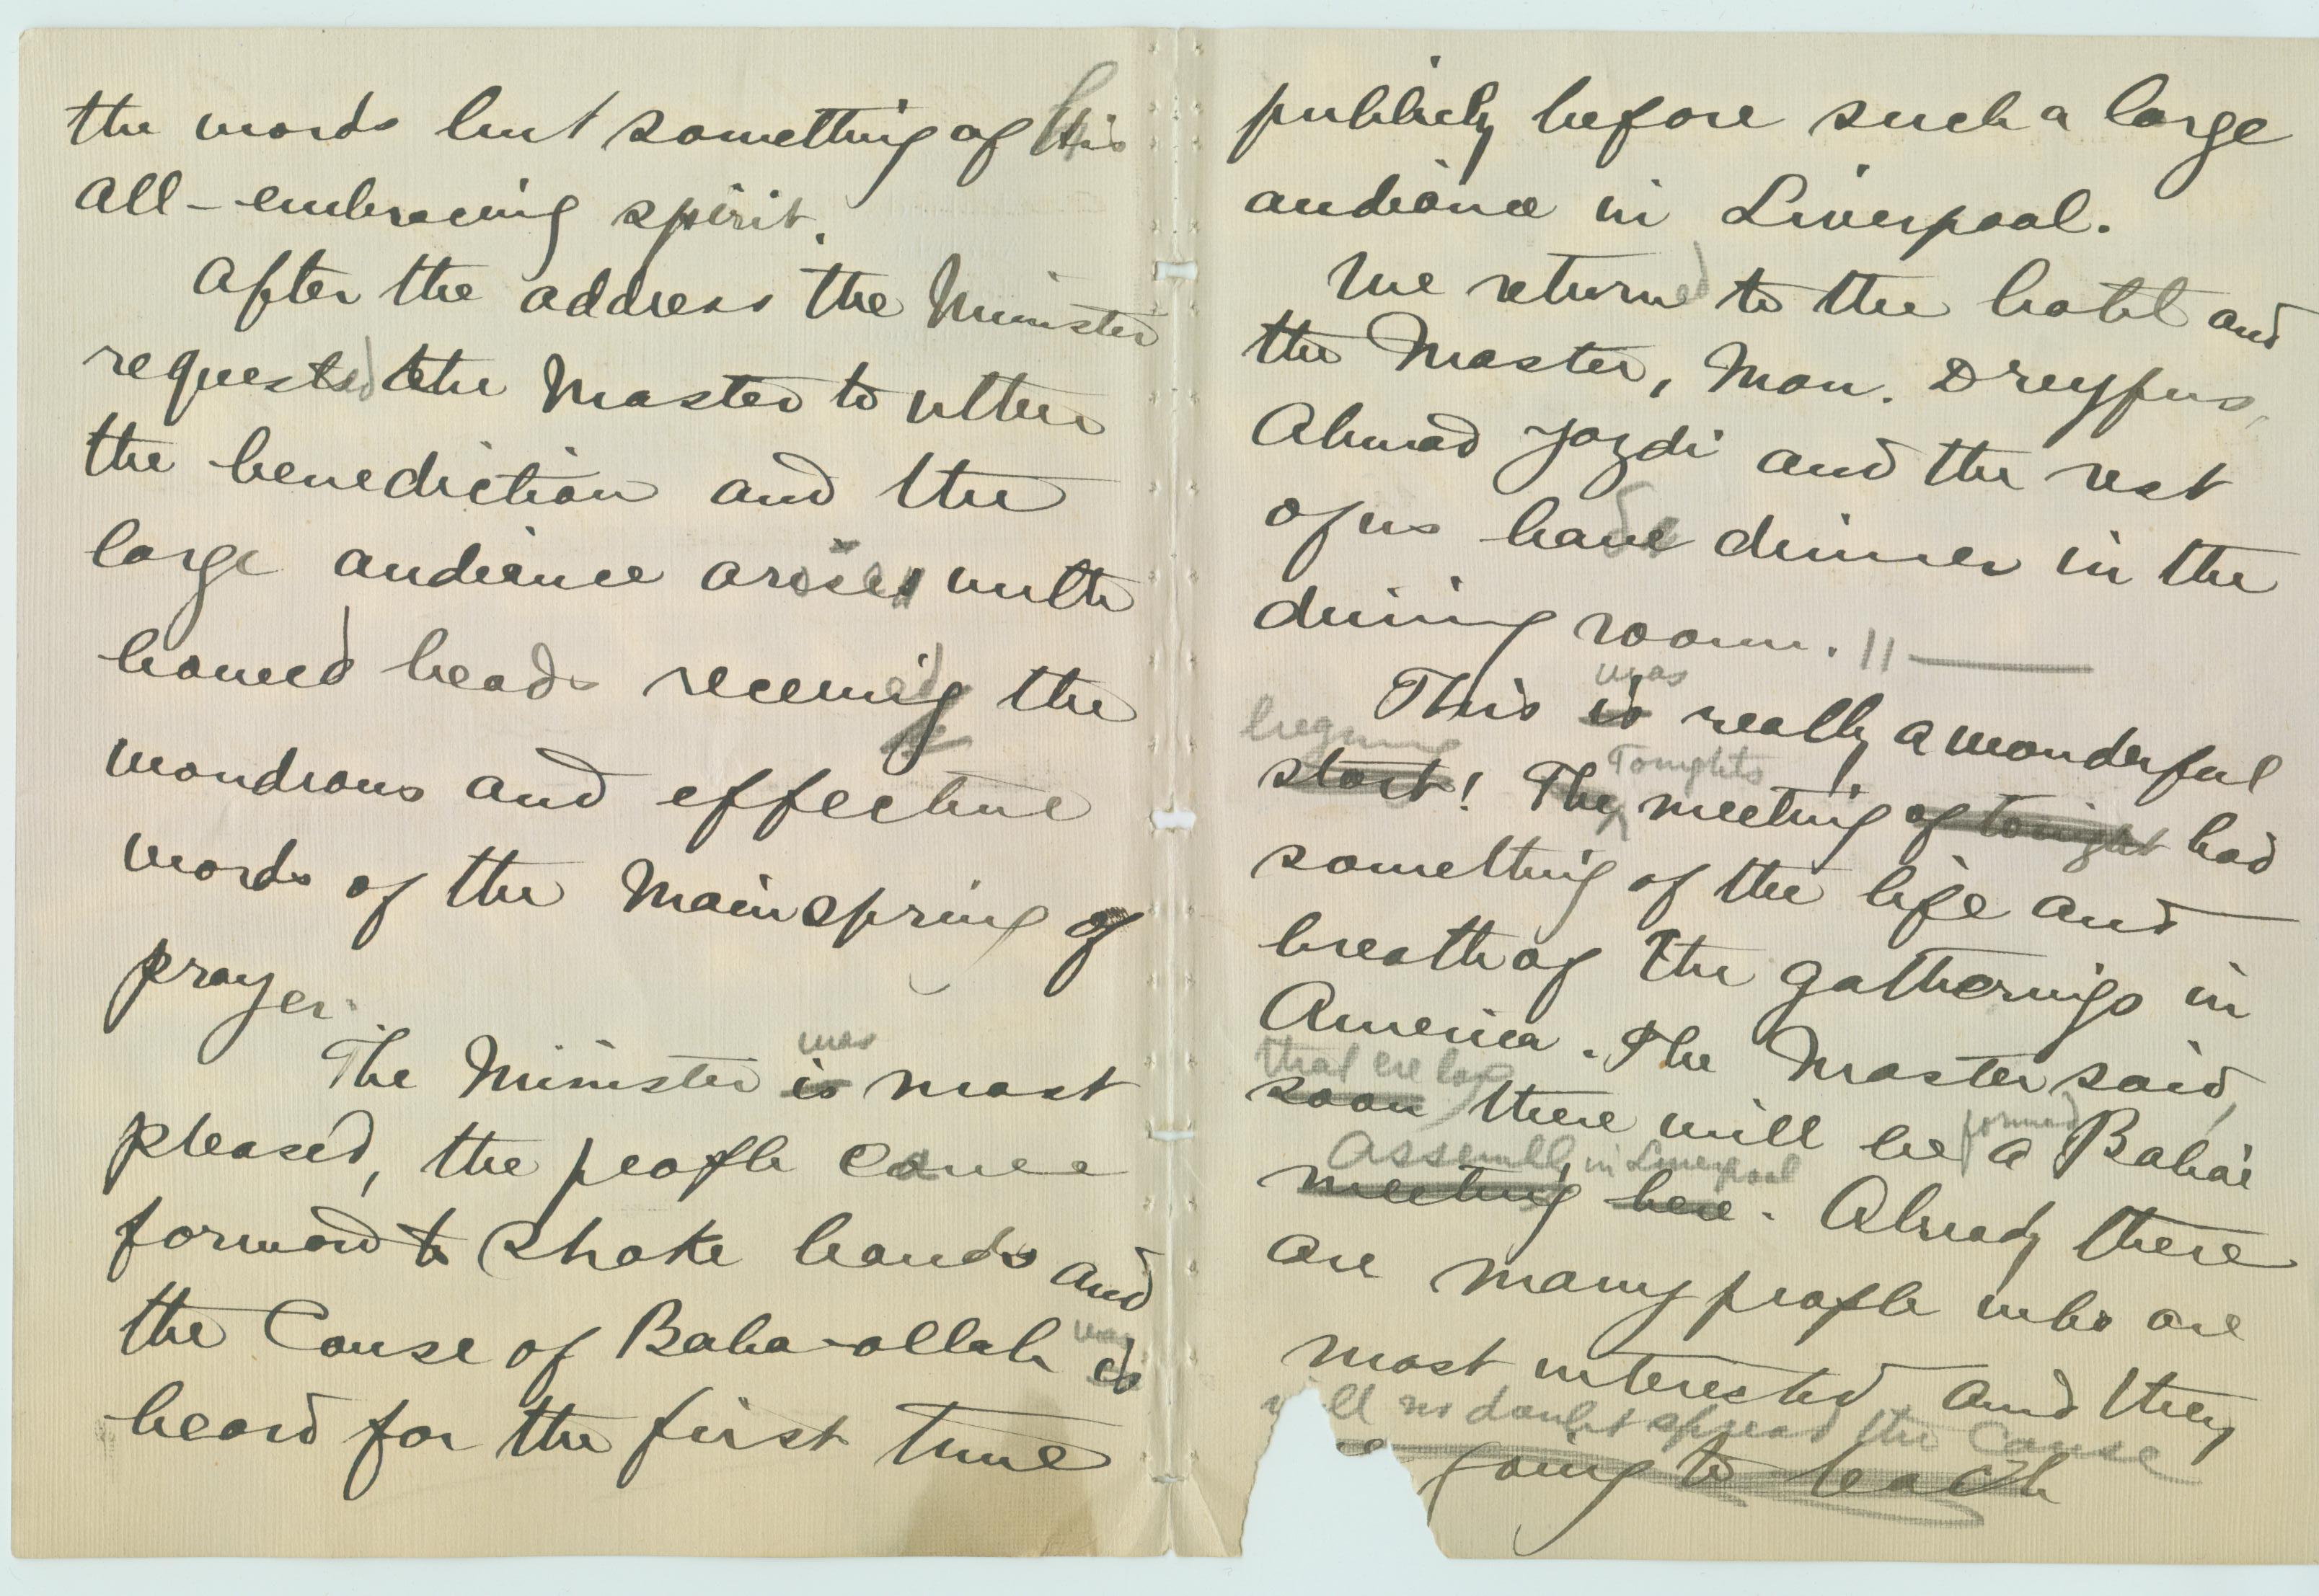 the words but something of His
all-embracing spirit.
After the address the Minister
requested the Master to utter
the benediction and the
large audience arises with
bowed heads receiving the
wondrous and effective
words of the Mainspring of
prayer.
was
The Minister is most
pleased, the people came
forward to shake hands and
was
the Cause of Baha-ollah is
heard for the first time
publicly before such a large
audience in Liverpool.
We returned to the hotel and
the Master, Mon. Dreyfus,
Ahmad Yazdi and the rest
of us have dinner in the
dining room. ||—
was
This is really a wonderful
Tonights
start! The meeting of tonight had
something of the life and
breath of the gatherings in
America. The Master said,
that ere long
formed
soon there will be a Bahai
Assembly in Liverpool
meeting here. Already there
are many people who are
most interested and they
will no doubt spread the Cause
going to teach